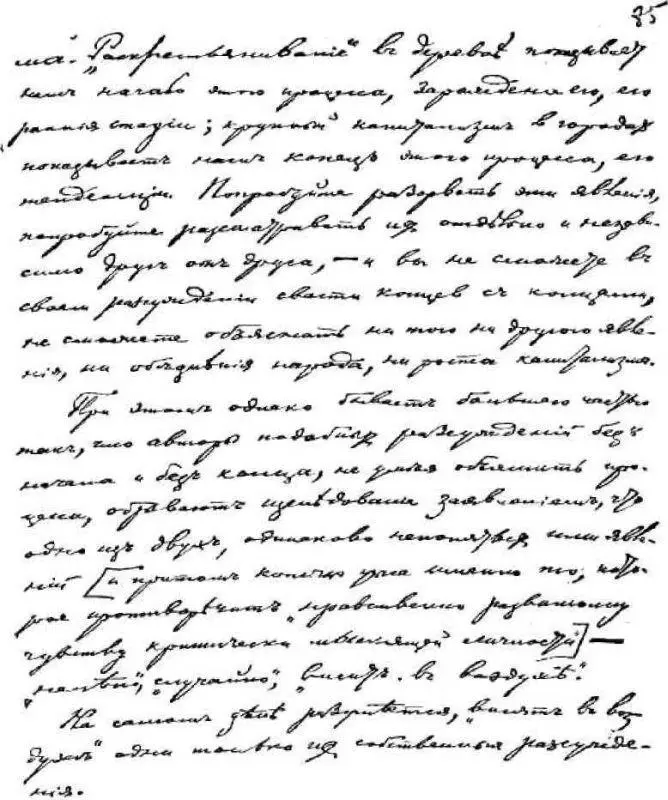 35
ма". "Раскрестьянивание" въ деревнѣ показываетъ
намъ начало этого процесса, зарожденіе его, его
раннія стадіи; крупный капитализмъ в городахъ
показываетъ намъ конецъ этого процесса, его
тенденціи. Попробуйте разорвать эти явленія,
попробуйте разсматривать их отдѣльно и незави-
симо другъ отъ друга, — и вы не сможете въ
своемъ разсужденіи свести концов съ концами,
не сможете объяснить ни того ни другого явле-
нія, ни обѣднѣнія народа, ни роста капитализма.
При этомъ однако бываетъ большею частью
такъ, что авторы подобныхъ разсужденій безъ
начала и безъ конца, не умѣя объяснить про-
цесса, обрываютъ изслѣдованіе заявленіемъ, что
одно изъ двухъ, одинаково непонятыхъ ими явле-
ній [и притомъ конечно ужъ именно то, кото-
рое противорѣчитъ "нравственно развитому
чувству критически мыслящей личности"] —
"нелѣпо", "случайно", "виситъ въ воздухѣ".
На самомъ дѣлѣ разумѣется, "висятъ въ воз-
духѣ" одни только их собственныя разсужде-
нія.